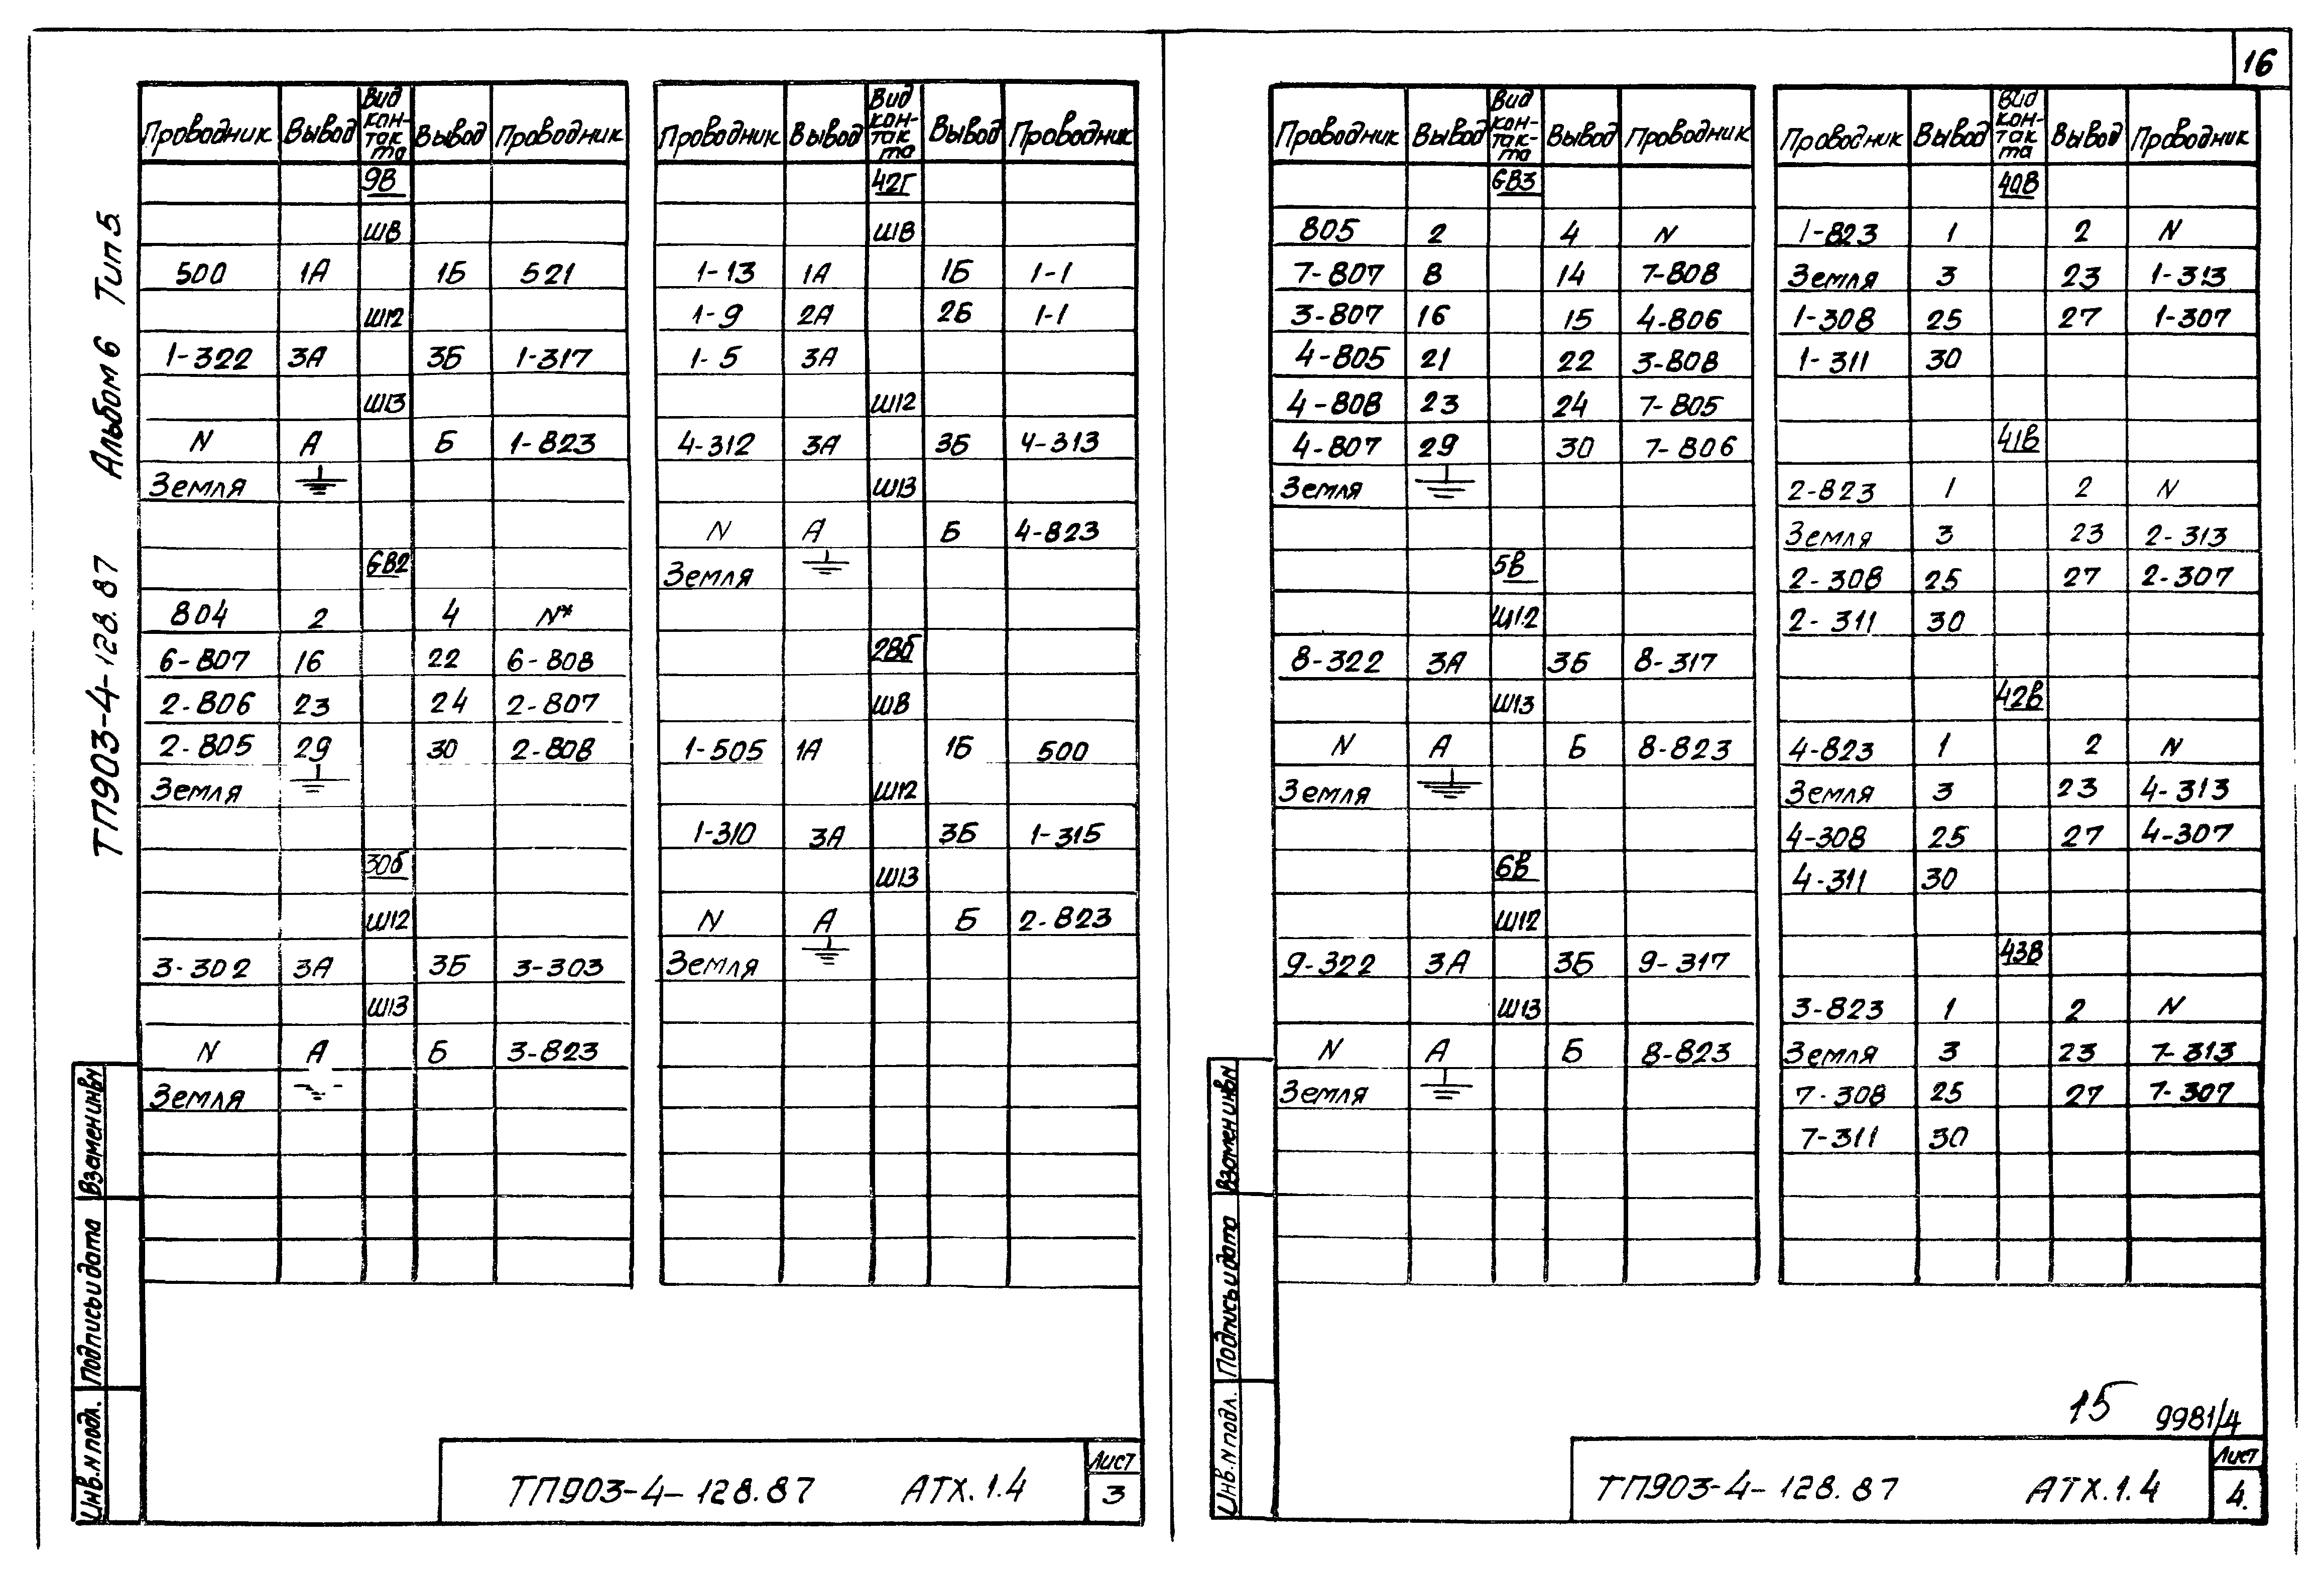 16
ТП903-4-128.87 Альбом 6 Тип 5
Проводник Вывод Вид контакта Вывод Проводник
9В
Ш8
500 1А 1Б 521
Ш12
1-322 3А 3Б 1-317
Ш13
N А Б 1-823
Земля
GB2
804 2 4 N*
6-807 16 22 6-808
2-806 23 24 2-807
2-805 29 30 2-808
Земля
30б
Ш12
3-302 3А 3Б 3-303
Ш13
N А Б 3-823
Земля
Проводник Вывод Вид контакта Вывод Проводник
42Г
Ш8
1-13 1А 1Б 1-1
1-9 2А 2Б 1-1
1-5 3А
Ш12
4-312 3А 3Б 4-313
Ш13
N А Б 4-823
Земля
28б
Ш8
1-505 1А 1Б 500
Ш12
1-310 3А 3Б 1-315
Ш13
N А Б 2-823
Земля
Взамен инв N
Подпись и дата
Инв. N подл.
ТП903-4-128.87 АТХ.1.4
Лист
3
Проводник Вывод Вид контакта Вывод Проводник
GB3
805 2 4 N
7-807 8 14 7-808
3-807 16 15 4-806
4-805 21 22 3-808
4-808 23 24 7-805
4-807 29 30 7-806
Земля
5В
Ш12
8-322 3А 3Б 8-317
Ш13
N А Б 8-823
Земля
6В
Ш12
9-322 3А 3Б 9-317
Ш13
N А Б 8-823
Земля
Проводник Вывод Вид контакта Вывод Проводник
40В
1-823 1 2 N
Земля 3 23 1-313
1-308 25 27 1-307
1-311 30
41В
2-823 1 2 N
Земля 3 23 2-313
2-308 25 27 2-307
2-311 30
42В
4-823 1 2 N
Земля 3 23 4-313
4-308 25 27 4-307
4-311 30
43В
3-823 1 2 N
Земля 3 23 7-313
7-308 25 27 7-307
7-311 30
Взамен инв N
Подпись и дата
Инв. N подл.
15
9981/4
ТП903-4-128.87 АТХ.1.4
Лист
4.